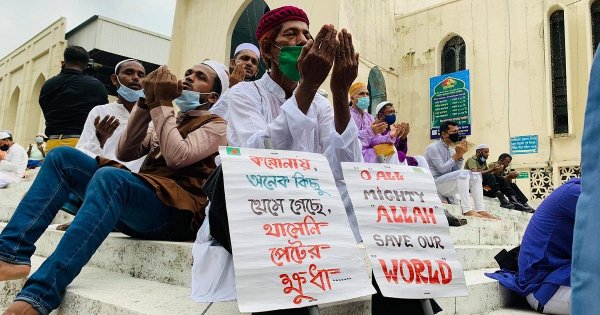 করোনায়,
অনেক কিছু
থেমে গেছে,
থামেনি
পেটের
ক্ষুধা
"O ALL
MIGHTY
ALLAH
SAVE OUR
"WORLD"